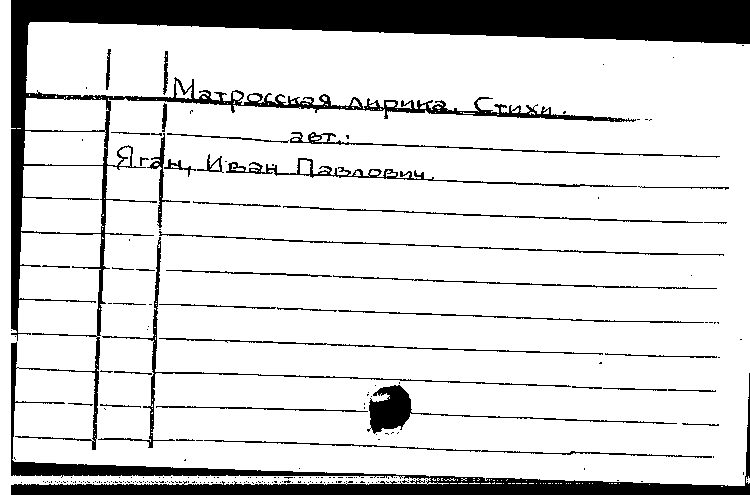 Матросская лирика. Стихи.
авт.:
Яган, Иван Павлович.